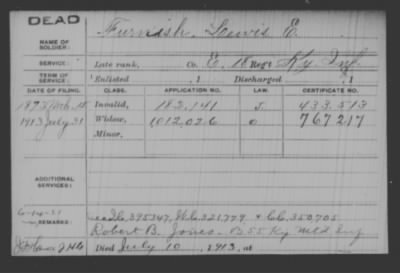 DEAD
NAME OF SOLDIER: Furnish, Lewis E.
SERVICE: Late rank, Co. E, 18 Reg't Ky Inf.
TERM OF SERVICE: Enlisted , 1 Discharged , 1
DATE OF FILING. CLASS. APPLICATION NO. LAW. CERTIFICATE NO.
Invalid, 182,141 433.513
1913 July 31 Widow, 1012,026 767217
Minor.
ADDITIONAL SERVICES:
REMARKS: 395347, 321,779 + 350,705
Robert B. Jones - B 55 Ky Mtd Inf
Died July 10, 1913, at